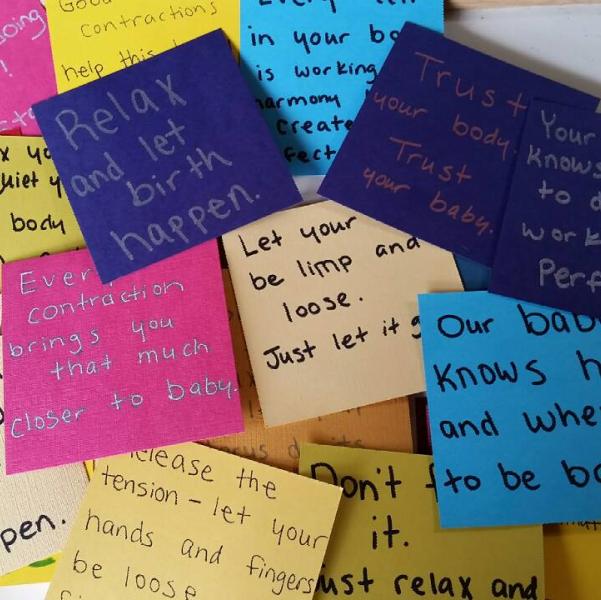 oing
!
Good
contractions
help this
Every
in your bo
is working
harmony
create
fect
Relax
and let
birth
happen.
Trust
your body.
Trust
your baby.
Your
knows
to d
work
Perf
x yo
uiet y
body
Every
contraction
brings you
that much
closer to baby.
Let your
be limp and
loose.
Just let it g
Our bab
knows h
and whe
to be bo
pen.
release the
tension - let your
hands and fingers
be loose
Don't f
it.
Just relax and